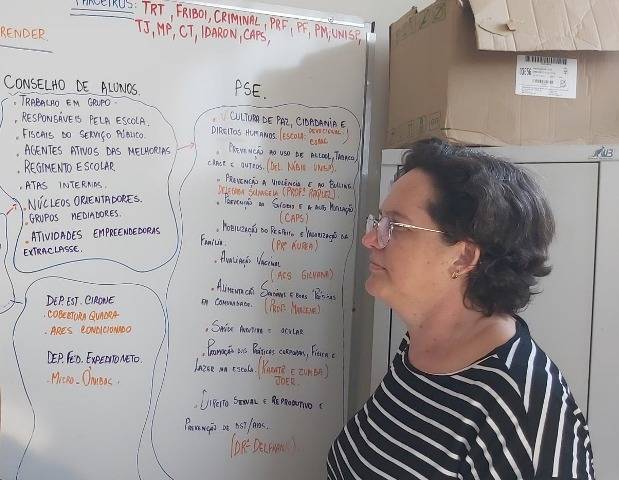 PARCEIROS: TRT, FRIBOI, CRIMINAL, PRF, PF, PM, UNISP,
TJ, MP, CT, IDARON, CAPS,
RENDER.
CONSELHO DE ALUNOS.
• TRABALHO EM GRUPO.
• RESPONSÁVEIS PELA ESCOLA.
• FISCAIS DO SERVIÇO PÚBLICO.
• AGENTES ATIVOS DAS MELHORIAS
• REGIMENTO ESCOLAR
• ATAS INTERNAS.
• NÚCLEOS ORIENTADORES.
• GRUPOS MEDIADORES.
• ATIVIDADES EMPREENDEDORAS
EXTRACLASSE.
DEP. EST. CIRONE
• COBERTURA QUADRA
• ARES CONDICIONADO
DEP. FED. EXPEDITO NETO.
MICRO-ÔNIBUS.
PSE.
• CULTURA DE PAZ, CIDADANIA E
DIREITOS HUMANOS. (ESCOLA: DEVOCIONAL)
• PREVENÇÃO AO USO DE ALCOOL, TABACO,
CRACK E OUTROS. (DEL. NÚBIO UNISP).
• PREVENÇÃO A VIOLÊNCIA E AO BULLING
DELEGADA SOLANGELA (PROFª RAQUEL)
• PREVENÇÃO AO SUÍCIDIO E A AUTO MUTILAÇÃO
(CAPS)
• MOBILIZAÇÃO DO RESPEITO E VALORIZAÇÃO DA
FAMÍLIA. (PRª ÁUREA)
• AVALIAÇÃO VACINAL
(ACS GILVANA)
• ALIMENTAÇÃO SAUDÁVEIS E BOAS PRÁTICAS
EM COMUNIDADE. (PROFª MARLENE)
• SAÚDE AUDITIVA E OCULAR
• PROMOÇÃO DAS PRÁTICAS CORPORAIS, FÍSICA E
LAZER NA ESCOLA. (KARATÊ E ZUMBA)
JOER.
• DIREITO SEXUAL E REPRODUTIVO E
PREVENÇÃO DE DST/AIDS.
(DRª DELFHANY).